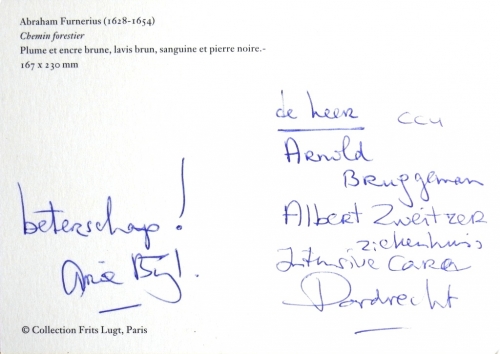 Abraham Furnerius (1628-1654)
Chemin forestier
Plume et encre brune, lavis brun, sanguine et pierre noire.-
167 x 230 mm
beterschap!
de heer CCU
Arnold
Bruggeman
Albert Zweitzer
ziekenhuis
Intensive Care
Dordrecht
© Collection Frits Lugt, Paris